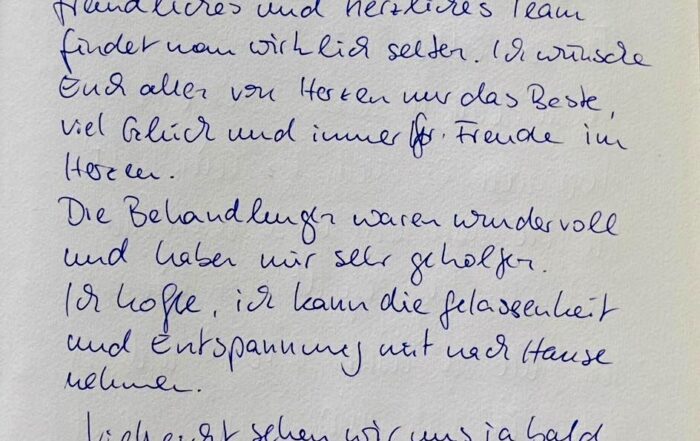 freundliches und herzliches Team
findet man wirklich selten. Ich wünsche
Euch allen von Herzen nur das Beste,
viel Glück und immer Freude im
Herzen.
Die Behandlungen waren wundervoll
und haben mir sehr geholfen.
Ich hoffe, ich kann die Gelassenheit
und Entspannung mit nach Hause
nehmen.
Vielleicht sehen wir uns ja bald